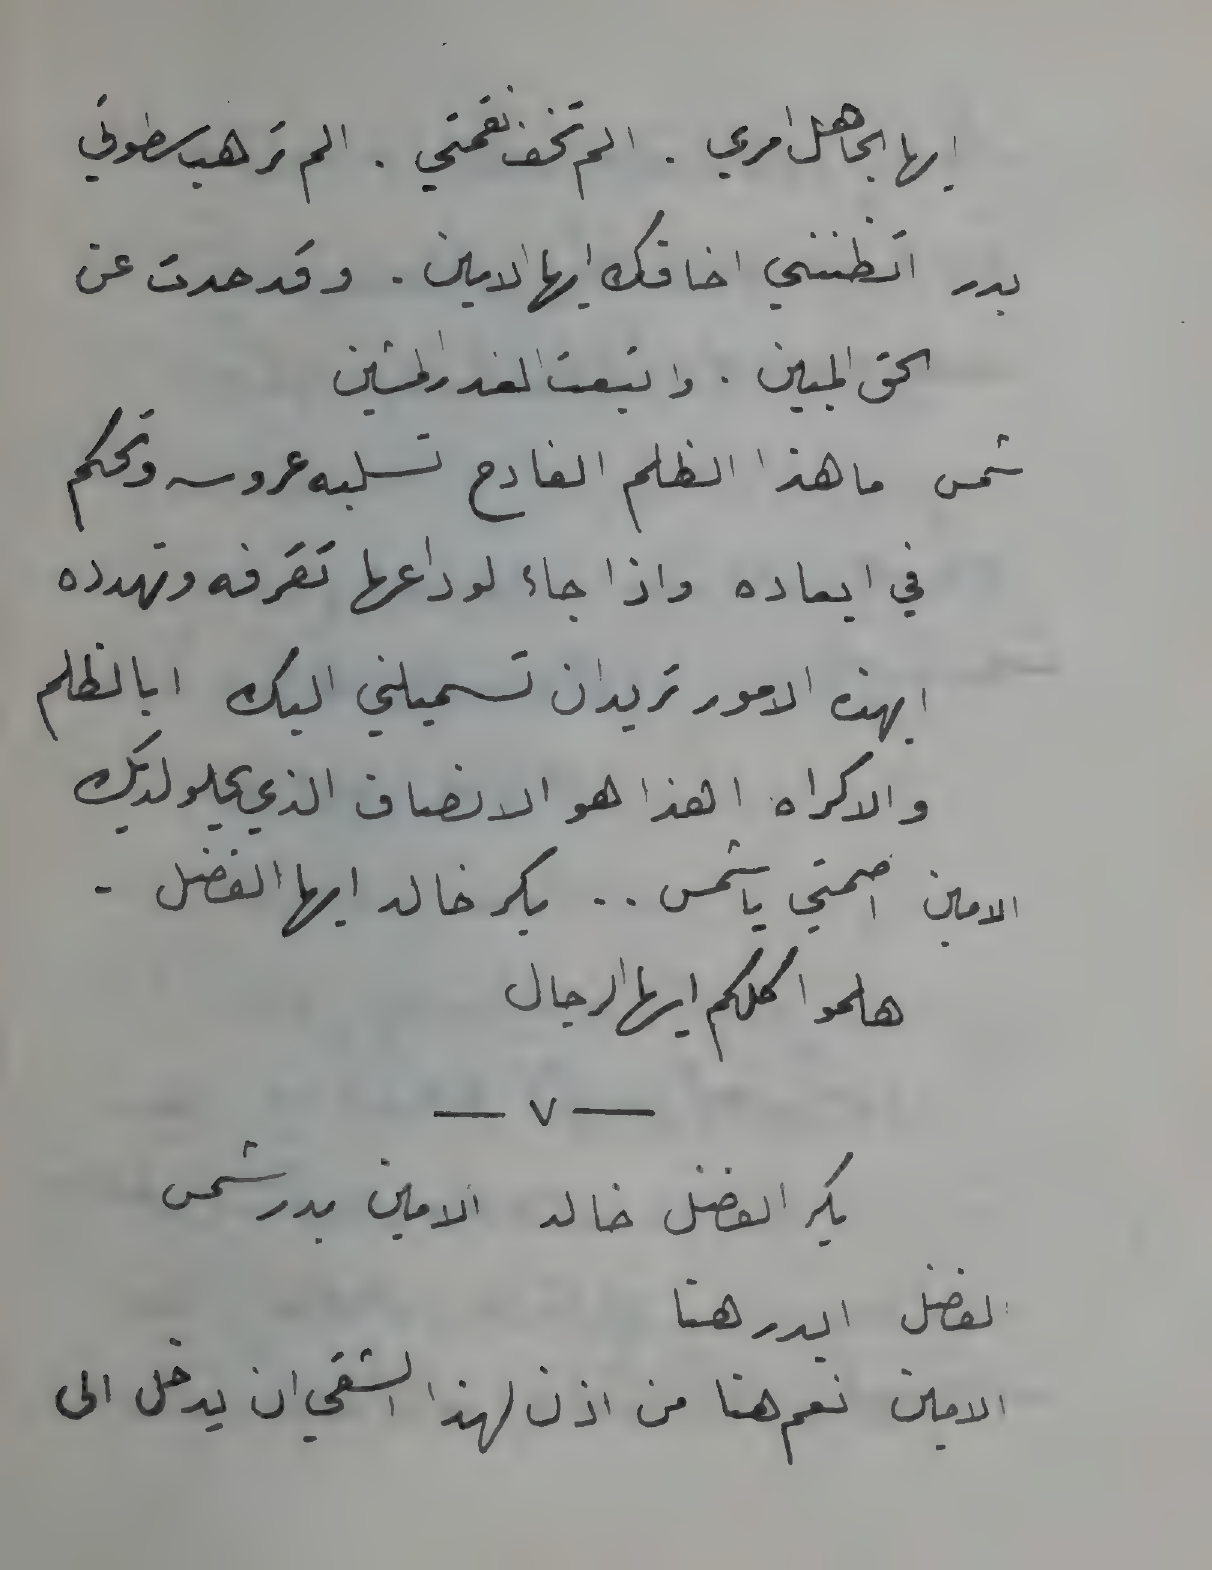 ايها الجاهل امري . الم تخف نقمتي . الم ترهب سطوتي
بدر اتظنني اخافك ايها الامين . وقد حدت عن
الحق المبين . واتبعت الغدر المشين
شمس ما هذا الظلم الفادح تسلبه عروسه وتحكم
في ابعاده واذا جاء لوداعها تقرفه وتهدده
ابهذه الامور تريد ان تسميلني اليك ابالظلم
والاكراه اهذا هو الانصاف الذي يحلو لديك
الامين اصمتي يا شمس .. بكر خالد ايها الفضل -
هلموا كلكم ايها الرجال
— ٧ —
بكر الفضل خالد الامين بدر شمس
الفضل ابدر هنا
الامين نعم هنا من اذن لهذا الشقي ان يدخل الى